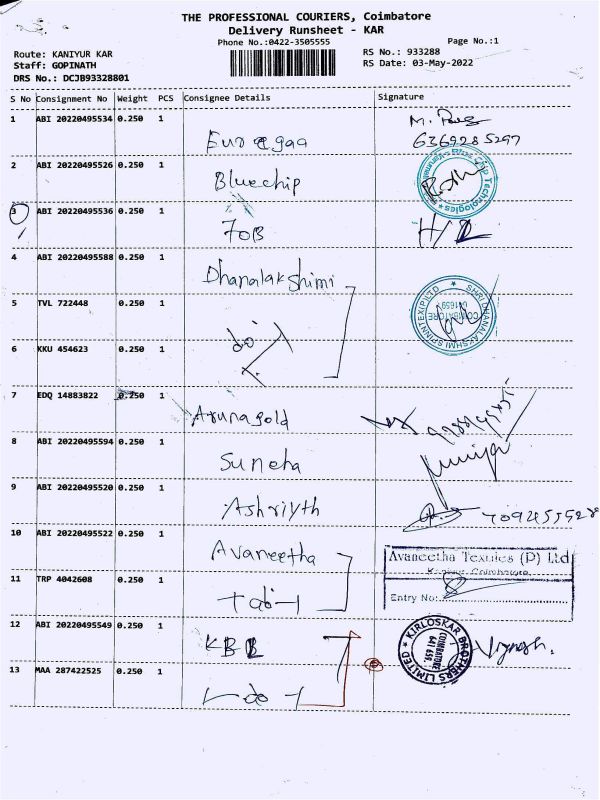 THE PROFESSIONAL COURIERS, Coimbatore
Delivery Runsheet - KAR
Phone No.:0422-3505555
Page No.:1
Route: KANIYUR KAR
RS No.: 933288
Staff: GOPINATH
RS Date: 03-May-2022
DRS No.: DCJB93328801
S No Consignment No Weight PCS Consignee Details Signature
1 ABI 20220495534 0.250 1
6369285297
2 ABI 20220495526 0.250 1 Bluechip
3 ABI 20220495536 0.250 1 FOB
4 ABI 20220495588 0.250 1 Dhanalakshimi
5 TVL 722448 0.250 1 do
6 KKU 454623 0.250 1
7 EDQ 14883822 0.250 1 Arunagold
8 ABI 20220495594 0.250 1 Suneha
9 ABI 20220495520 0.250 1 Ashriyth
10 ABI 20220495522 0.250 1 Avaneetha
Avaneetha Textiles (P) Ltd
11 TRP 4042608 0.250 1
Entry No:
12 ABI 20220495549 0.250 1 KBL
KIRLOSKAR BROTHERS LIMITED
COIMBATORE
641 659.
Vignesh.
13 MAA 287422525 0.250 1 do